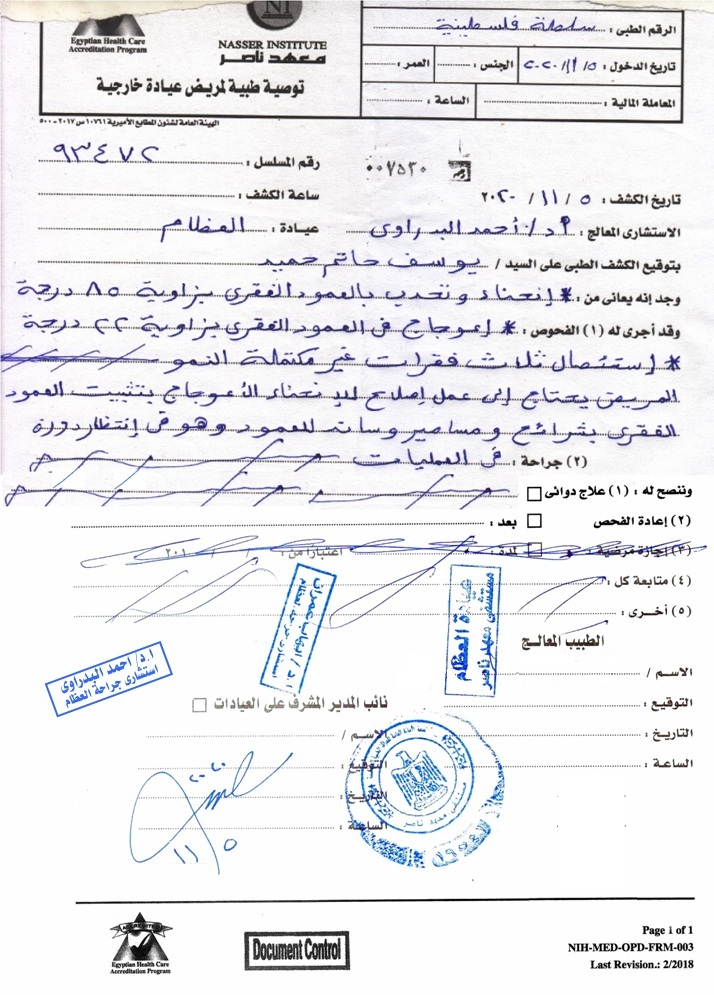 Egyptian Health Care
Accreditation Program
NI
NASSER INSTITUTE
معهد ناصر
توصية طبية لمريض عيادة خارجية
الرقم الطبى : سلطة فلسطينية
تاريخ الدخول : ٢٠٢٠/١١/٥ الجنس : العمر :
المعاملة المالية : الساعة :
الهيئة العامة لشئون المطابع الأميرية ١٠٧٦١ س ٢٠١٧ - ٥٠٠
رقم المسلسل : ٩٣٤٧٢
٠٠٧٥٣٠
تاريخ الكشف : ٥ / ١١ / ٢٠٢٠ ساعة الكشف :
الاستشارى المعالج : أ.د/ أحمد البدراوى عيادة : العظام
بتوقيع الكشف الطبى على السيد / يوسف حاتم حميد
وجد إنه يعانى من : * إنحناء وتحدب بالعمود الفقرى بزاوية ٨٥ درجة
وقد أجرى له (١) الفحوص : * إعوجاج فى العمود الفقرى بزاوية ٢٢ درجة
* إستئصال ثلاث فقرات غير مكتملة النمو
المريض يحتاج إلى عمل إصلاح للإنحناء الأعوجاج بتثبيت العمود
الفقرى بشرائح ومسامير وسات للعمود وهو فى إنتظار دورة
(٢) جراحة : فى العمليات
وننصح له : (١) علاج دوائى
(٢) إعادة الفحص بعد :
(٣) إجازة مرضية : لمدة : اعتبارا من : / / ٢٠١
(٤) متابعة كل :
(٥) أخرى :
الطبيب المعالج
عيادة العظام
مستشفى معهد ناصر
ا.د/ احمد البدراوى
استشارى جراحة العظام
الاسم /
التوقيع :
التاريخ :
الساعة :
نائب المدير المشرف على العيادات
الاسم /
التوقيع :
التاريخ :
الساعة :
٢٠٢٠
١١/٥
مستشفى معهد ناصر
ACCREDITED
Egyptian Health Care
Accreditation Program
Document Control
Page 1 of 1
NIH-MED-OPD-FRM-003
Last Revision.: 2/2018